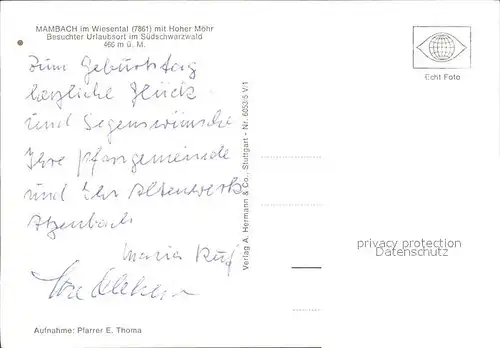 MAMBACH im Wiesental (7861) mit Hoher Möhr
Besuchter Urlaubsort im Südschwarzwald
466 m ü. M.
Echt Foto
Zum Geburtstag
herzliche Glück
und Segenswünsche
Ihre Pfarrgemeinde
und Ihr Altenwerk
Atzenbach
Maria Ruf
Aufnahme: Pfarrer E. Thoma
Verlag A. Hermann & Co., Stuttgart - Nr. 6053/5 V/1
privacy protection
Datenschutz